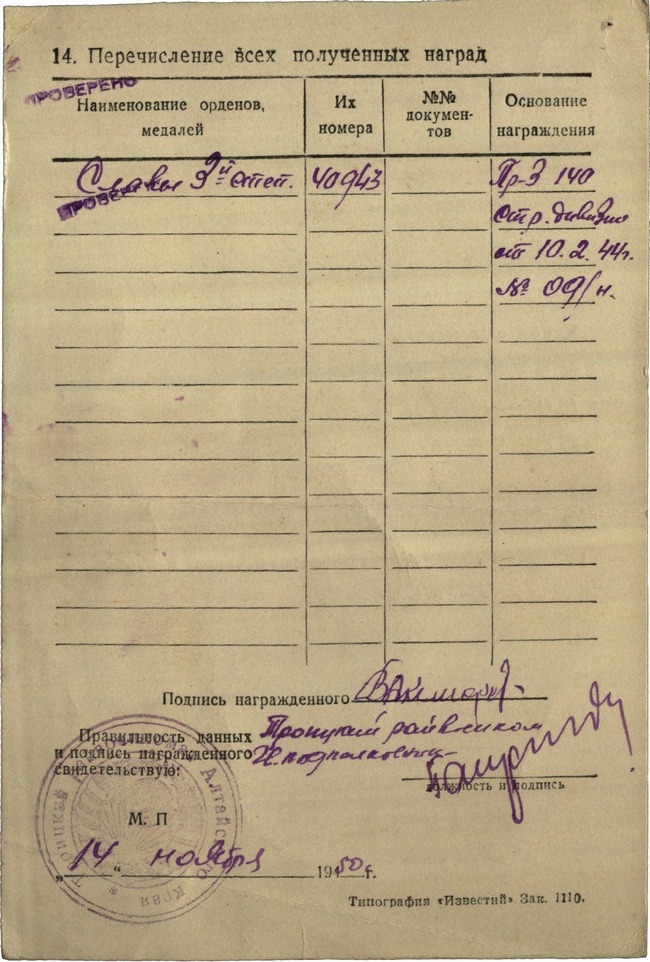 14. Перечисление всех полученных наград
ПРОВЕРЕНО
Наименование орденов, медалей
Их номера
№№ докумен-тов
Основание награждения
Славы 3й степ. 40943 Пр-з 140
ПРОВЕРЕНО стр. дивизии
от 10.2.44г.
№ 09/н.
Подпись награжденного
Правильность данных
и подпись награжденного
свидетельствую:
Троицкий райвоенком
подполковник
должность и подпись
М. П
Троицкий Алтайского Края
„14“ ноября 1950г.
Типография «Известий» Зак. 1110.